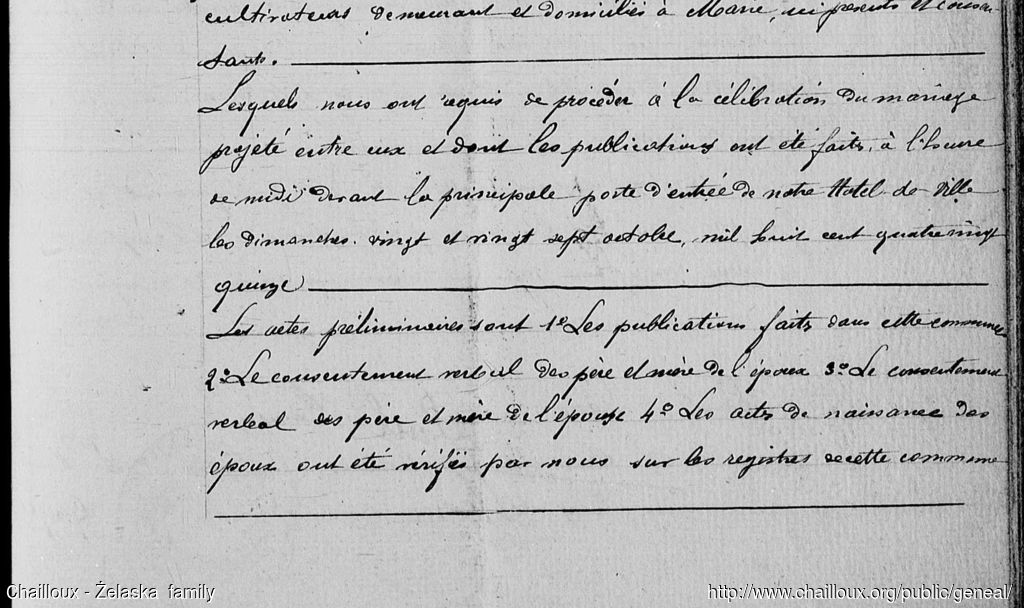 cultivateurs demeurant et domiciliés à Marie, ici présents et consen-
sants.
Lesquels nous ont requis de procéder à la célibration du mariage
projeté entre eux et dont les publications ont été faits, à l'heure
de midi devant la principale porte d'entrée de notre Hotel de Ville
les dimanches vingt et vingt sept octobre, mil huit cent quatrevingt
quinze
Les actes préliminaires sont 1º Les publications faits dans cette commune
2º Le consentement verbal des père et mère de l'époux 3º Le consentement
verbal des père et mère de l'épouse 4º Les acts de naissance des
époux ont été vérifiés par nous sur les registres de cette commune
Chailloux - Želaska family
http://www.chailloux.org/public/geneal/